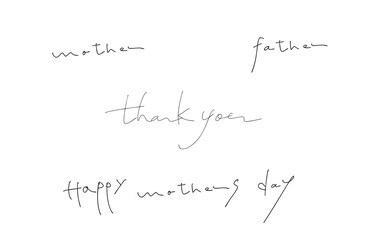 mother father
thank you
Happy mothers day